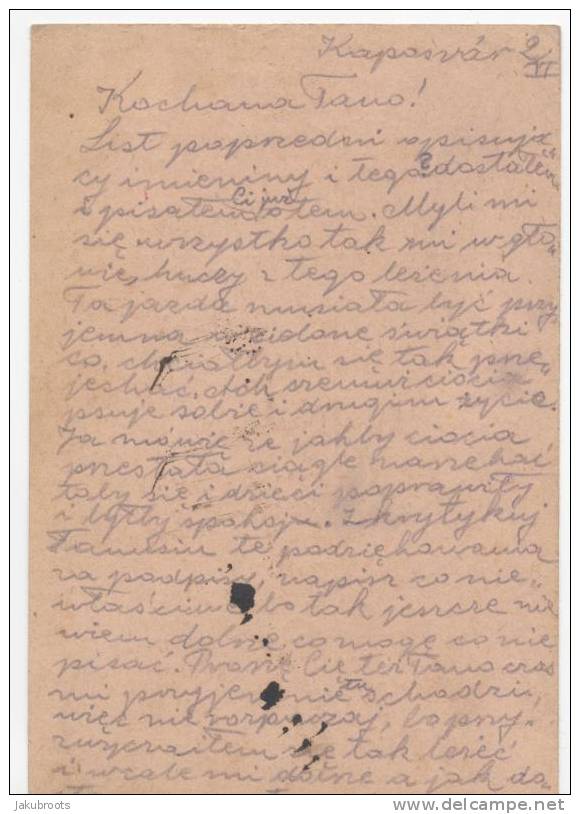 Kaposvár 2/VI
Kochana Tano!
List poprzedni opisują
cy imieniny i tego? dostałem
i pisałem Ci już o tem. Myli mi
się wszystko tak mi w gło„
wie, huczy z tego leżenia.
Ta jazda musiała być przy
jemna zielone świątki
co, chciałbym się tak prze„
jechać. Ach czemuż ciocia
psuje sobie i drugim życie.
Ja mówię że jakby ciocia
przestała ciągle narzekać
toby się i dzieci poprawiły
i byłby spokój. Zkrytykuj
Tanusiu te podziękowania
za podpisy, napisz co nie„
właściwe, bo tak jeszcze nie
wiem dobrze co mogę co nie
pisać. Proszę Cię też Tano czas
mi przyjemnie tu schodzi,
więc nie rozpaczaj, bo przy„
zwyczaiłem się tak leżeć
i wcale mi dobrze a jak do„
jakubroots
www.delcampe.net